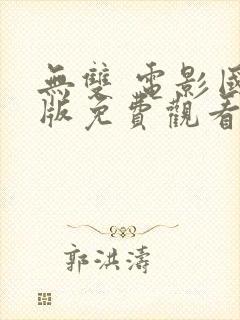 無雙 電影國
版免費觀看
郭洪濤